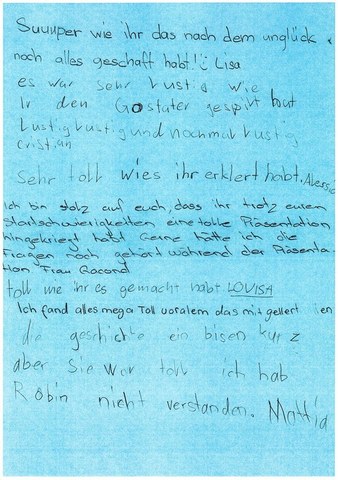 Suuuper wie ihr das nach dem unglück
noch alles geschaft habt! Lisa
es war sehr Lustig wie
Ir den Gostater gespilt hout
Lustig Lustig und nochmal Lustig
cristian
Sehr toll wies ihr erklert habt. Alessio
Ich bin stolz auf euch, dass ihr trotz euren
Startschwierigkeiten eine tolle Präsentation
hingekriegt habt. Gerne hätte ich die
Fragen noch gehört während der Präsenta-
tion Frau Gacond
toll me ihr es gemacht habt LOVISA
Ich fand alles mega Toll voralem das mit
die geschichte ein bisen kurz
aber Sie war toll ich hab
Robin nicht verstanden. Mattia